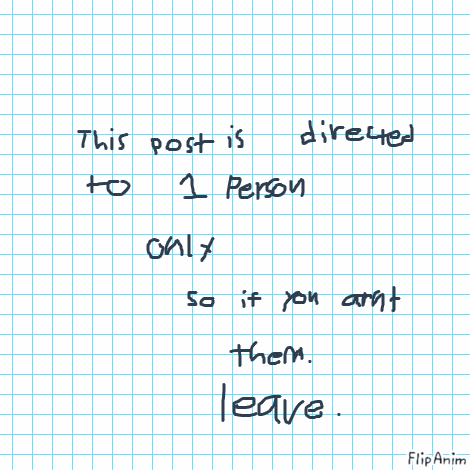 This post is directed
to 1 Person
only
so if you arnt
them.
leave.
FlipAnim